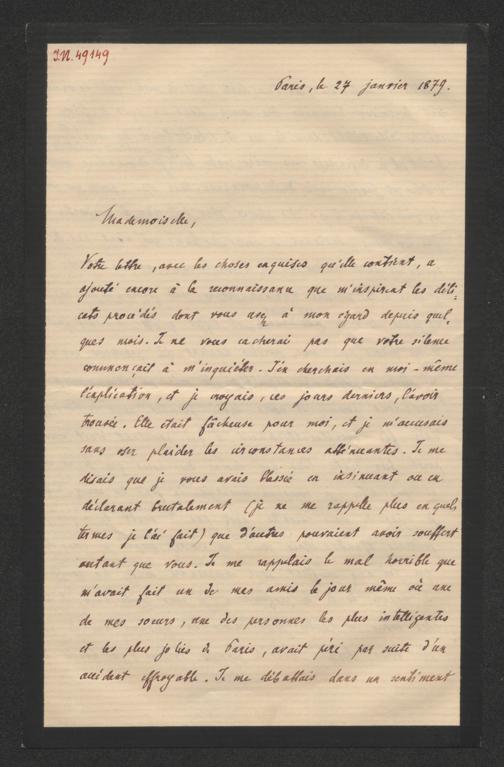 I.N. 49149
Paris, le 27 janvier 1879.
Mademoiselle,
Votre lettre, avec les choses exquises qu'elle contient, a
ajouté encore à la reconnaissance que m'inspirent les déli-
cats procédés dont vous usez à mon égard depuis quel-
ques mois. Je ne vous cacherai pas que votre silence
commençait à m'inquiéter. J'en cherchais en moi-même
l'explication, et je croyais, ces jours derniers, l'avoir
trouvée. Elle était fâcheuse pour moi, et je m'accusais
sans oser plaider les circonstances atténuantes. Je me
disais que je vous avais blessée en insinuant ou en
déclarant brutalement (je ne me rappelle plus en quels
termes je l'ai fait) que d'autres pouvaient avoir souffert
autant que vous. Je me rappelais le mal horrible que
m'avait fait un de mes amis le jour même où une
de mes soeurs, une des personnes les plus intelligentes
et les plus jolies de Paris, avait péri par suite d'un
accident effroyable. Je me débattais dans un sentiment